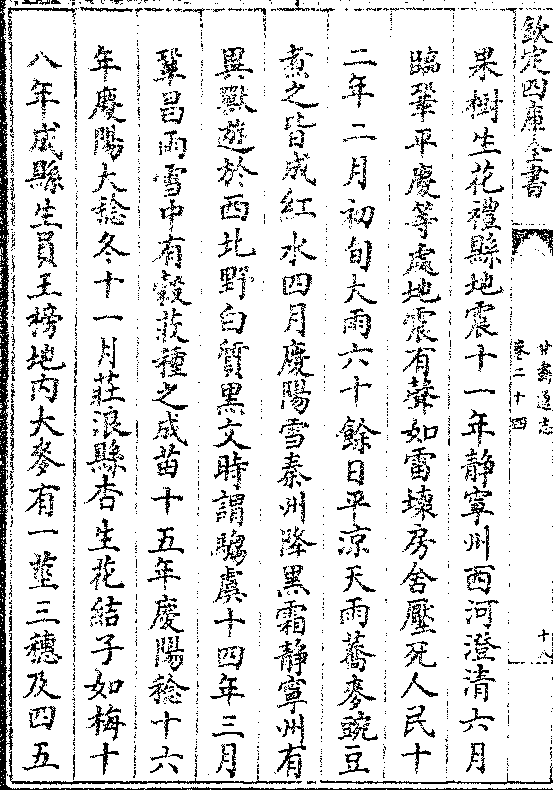 欽定四庫全書
甘肅通志
卷二十四
十八
果樹生花禮縣地震十一年靜寧州西河澄清六月
臨鞏平慶等處地震有聲如雷壞房舍壓死人民十
二年二月初旬大雨六十餘日平涼天雨蕎麥豌豆
煮之皆成紅水四月慶陽雪秦州降黑霜靜寧州有
異獸遊於西北野白質黑文時謂騶虞十四年三月
鞏昌雨雪中有穀菽種之成苗十五年慶陽稔十六
年慶陽大稔冬十一月莊浪縣杏生花結子如梅十
八年成縣生員王榜地內大麥有一莖三穗及四五